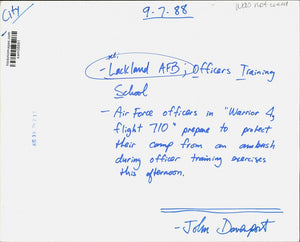 City
9-7-88
was not used
- Lackland AFB; Officers Training
School
- Air Force officers in "Warrior 4,
flight 710" prepare to protect
their camp from an ambush
during officer training exercises
this afternoon.
- John Davenport